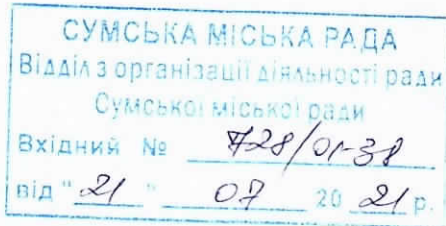 СУМСЬКА МІСЬКА РАДА
Відділ з організації діяльності ради
Сумської міської ради
Вхідний № 728/01-38
від "21" 07 2021 р.